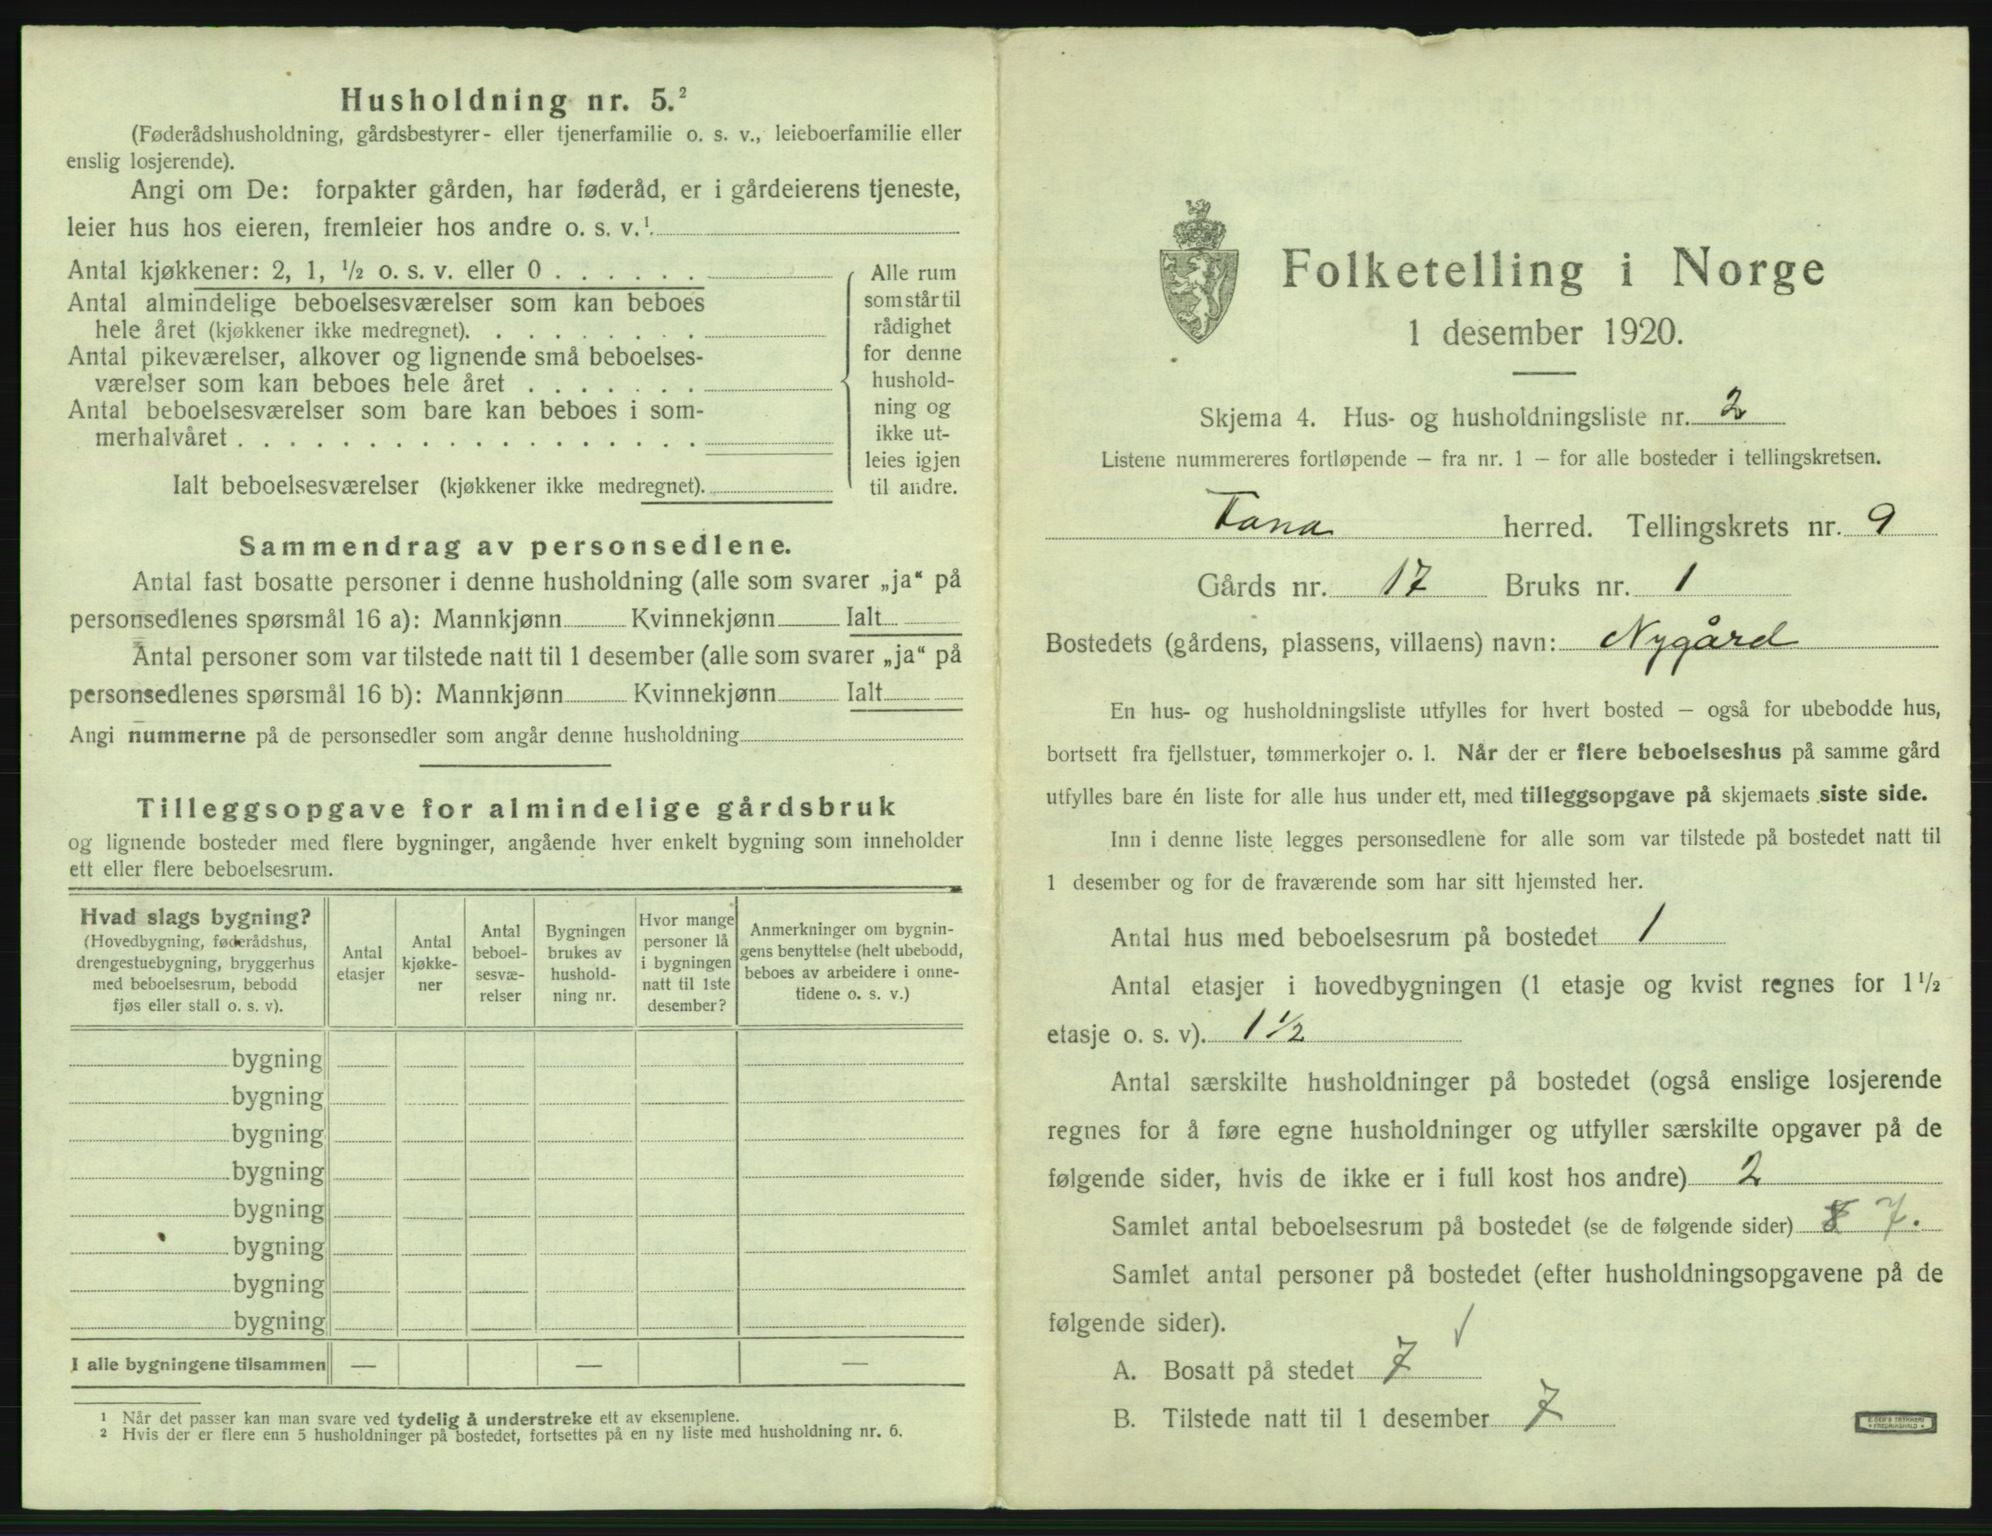 Husholdning nr. 5.²
(Føderådshusholdning, gårdsbestyrer- eller tjenerfamilie o. s. v., leieboerfamilie eller
enslig losjerende).
Angi om De: forpakter gården, har føderåd, er i gårdeierens tjeneste,
leier hus hos eieren, fremleier hos andre o. s. v.¹
Antal kjøkkener: 2, 1, ½ o. s. v. eller 0 . . . . . .
Antal almindelige beboelsesværelser som kan beboes
hele året (kjøkkener ikke medregnet). . . . . . . . .
Antal pikeværelser, alkover og lignende små beboelses-
værelser som kan beboes hele året . . . . . . .
Antal beboelsesværelser som bare kan beboes i som-
merhalvåret . . . . . . . . . . . . . . . . . .
Ialt beboelsesværelser (kjøkkener ikke medregnet).
Alle rum
som står til
rådighet
for denne
hushold-
ning og
ikke ut-
leies igjen
til andre.
Sammendrag av personsedlene.
Antal fast bosatte personer i denne husholdning (alle som svarer „ja“ på
personsedlenes spørsmål 16 a): Mannkjønn Kvinnekjønn Ialt
Antal personer som var tilstede natt til 1 desember (alle som svarer „ja“ på
personsedlenes spørsmål 16 b): Mannkjønn Kvinnekjønn Ialt
Angi nummerne på de personsedler som angår denne husholdning
Tilleggsopgave for almindelige gårdsbruk
og lignende bosteder med flere bygninger, angående hver enkelt bygning som inneholder
ett eller flere beboelsesrum.
Hvad slags bygning?
(Hovedbygning, føderådshus,
drengestuebygning, bryggerhus
med beboelsesrum, bebodd
fjøs eller stall o. s. v).
Antal
etasjer
Antal
kjøkke-
ner
Antal
beboel-
sesvæ-
relser
Bygningen
brukes av
hushold-
ning nr.
Hvor mange
personer lå
i bygningen
natt til 1ste
desember?
Anmerkninger om bygnin-
gens benyttelse (helt ubebodd,
beboes av arbeidere i onne-
tidene o. s. v.)
bygning
bygning
bygning
bygning
bygning
bygning
bygning
bygning
I alle bygningene tilsammen — — —
¹ Når det passer kan man svare ved tydelig å understreke ett av eksemplene.
² Hvis der er flere enn 5 husholdninger på bostedet, fortsettes på en ny liste med husholdning nr. 6.
Folketelling i Norge
1 desember 1920.
Skjema 4. Hus- og husholdningsliste nr. 2
Listene nummereres fortløpende – fra nr. 1 – for alle bosteder i tellingskretsen.
Fana herred. Tellingskrets nr. 9
Gårds nr. 17 Bruks nr. 1
Bostedets (gårdens, plassens, villaens) navn: Nygård
En hus- og husholdningsliste utfylles for hvert bosted – også for ubebodde hus,
bortsett fra fjellstuer, tømmerkojer o. l. Når der er flere beboelseshus på samme gård
utfylles bare én liste for alle hus under ett, med tilleggsopgave på skjemaets siste side.
Inn i denne liste legges personsedlene for alle som var tilstede på bostedet natt til
1 desember og for de fraværende som har sitt hjemsted her.
Antal hus med beboelsesrum på bostedet 1
Antal etasjer i hovedbygningen (1 etasje og kvist regnes for 1½
etasje o. s. v). 1½
Antal særskilte husholdninger på bostedet (også enslige losjerende
regnes for å føre egne husholdninger og utfyller særskilte opgaver på de
følgende sider, hvis de ikke er i full kost hos andre) 2
Samlet antal beboelsesrum på bostedet (se de følgende sider) 8 7.
Samlet antal personer på bostedet (efter husholdningsopgavene på de
følgende sider). √
A. Bosatt på stedet 7
B. Tilstede natt til 1 desember 7